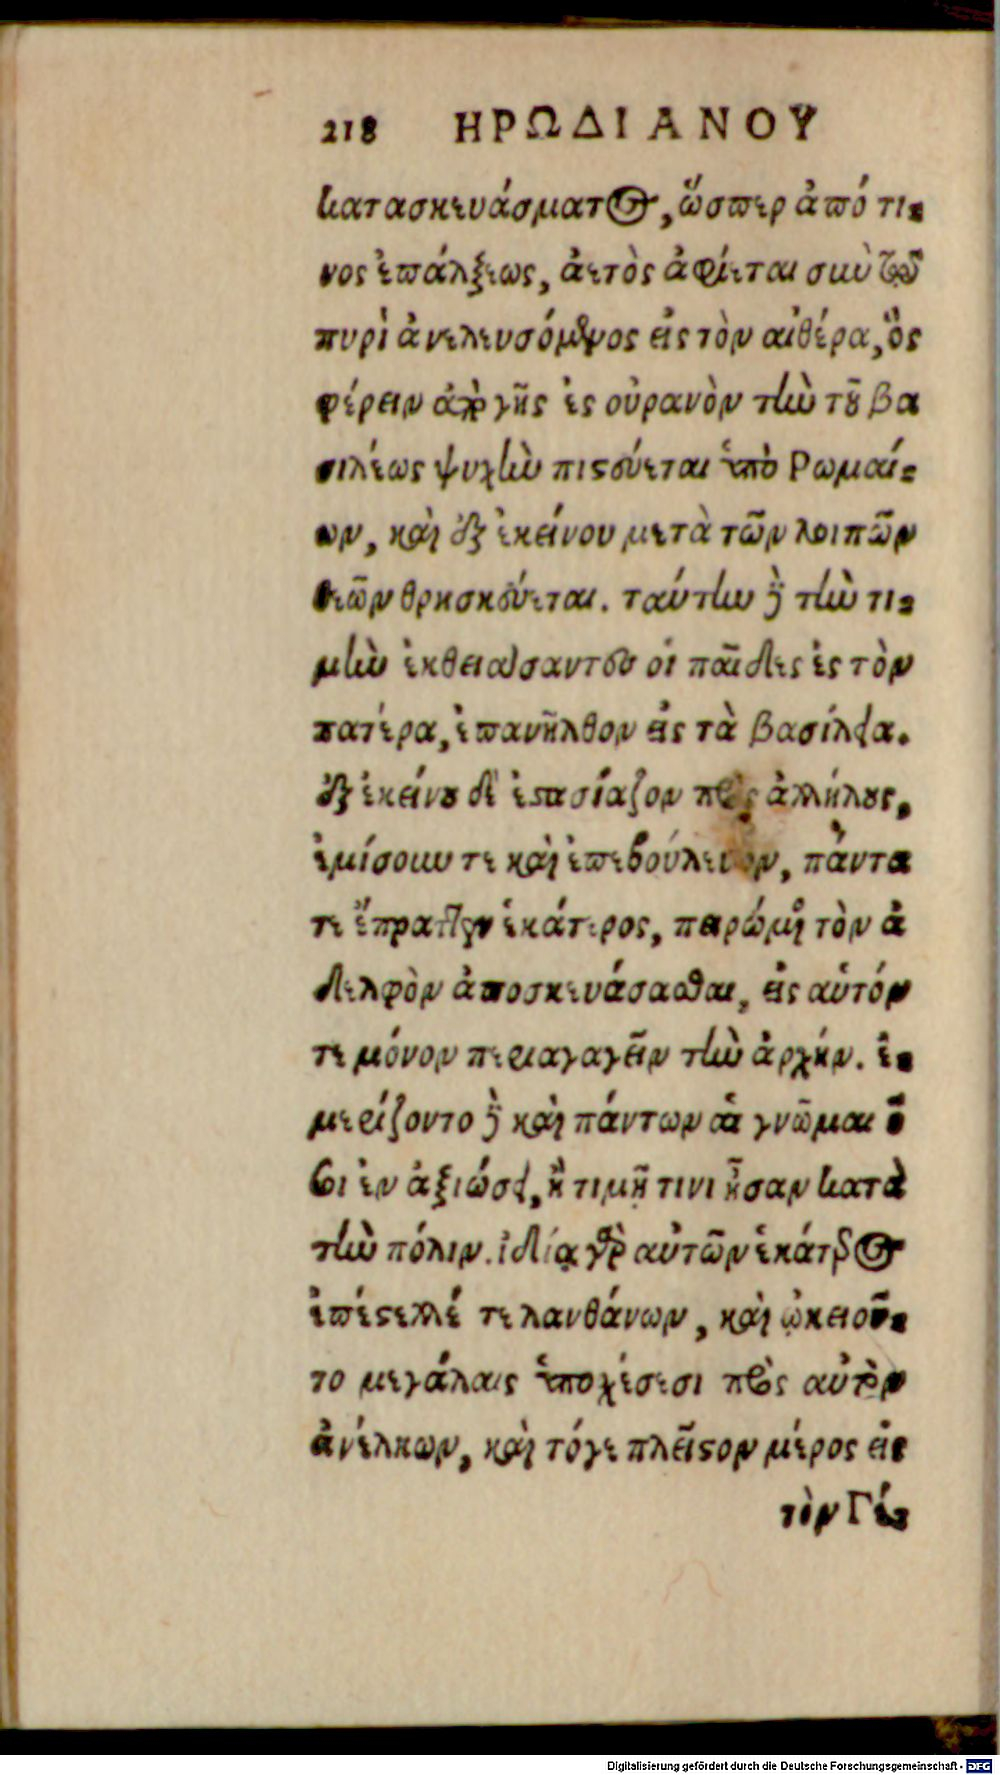 218 ΗΡΩΔΙΑΝΟΥ
κατασκευάσματος, ὥσπερ ἀπό τι-
νος ἐπάλξεως, ἀετὸς ἀφίεται σὺν τῷ
πυρὶ ἀνελευσόμενος εἰς τὸν αἰθέρα, ὃς
φέρειν ἀπὸ γῆς ἐς οὐρανὸν τὴν τοῦ βα
σιλέως ψυχὴν πιστεύεται ὑπὸ Ρωμαί-
ων, καὶ ἐξ ἐκείνου μετὰ τῶν λοιπῶν
θεῶν θρησκεύεται. ταύτην δὲ τὴν τι-
μὴν ἐκθειάσαντες οἱ παῖδες ἐς τὸν
πατέρα, ἐπανῆλθον εἰς τὰ βασίλεια.
ἐξ ἐκείνου δὲ ἐστασίαζον πρὸς ἀλλήλους,
ἐμίσουν τε καὶ ἐπεβούλευον, πάντα
τε ἔπραττεν ἑκάτερος, πειρώμενος τὸν ἀ
δελφὸν ἀποσκευάσασθαι, εἰς αὑτόν
τε μόνον περιαγαγεῖν τὴν ἀρχήν. ἐ-
μερίζοντο δὲ καὶ πάντων αἱ γνῶμαι ὅ
σοι ἐν ἀξιώσει, ἢ τιμῇ τινι ἦσαν κατὰ
τὴν πόλιν. ἰδίᾳ γὰρ αὐτῶν ἑκάτερος
ἐπέστελλέ τε λανθάνων, καὶ ᾠκειοῦ-
το μεγάλαις ὑποχέσεσι πρὸς αὑτὸν
ἀνέλκων, καὶ τόγε πλεῖστον μέρος εἰς
τὸν Γέ-
Digitalisierung gefördert durch die Deutsche Forschungsgemeinschaft - DFG